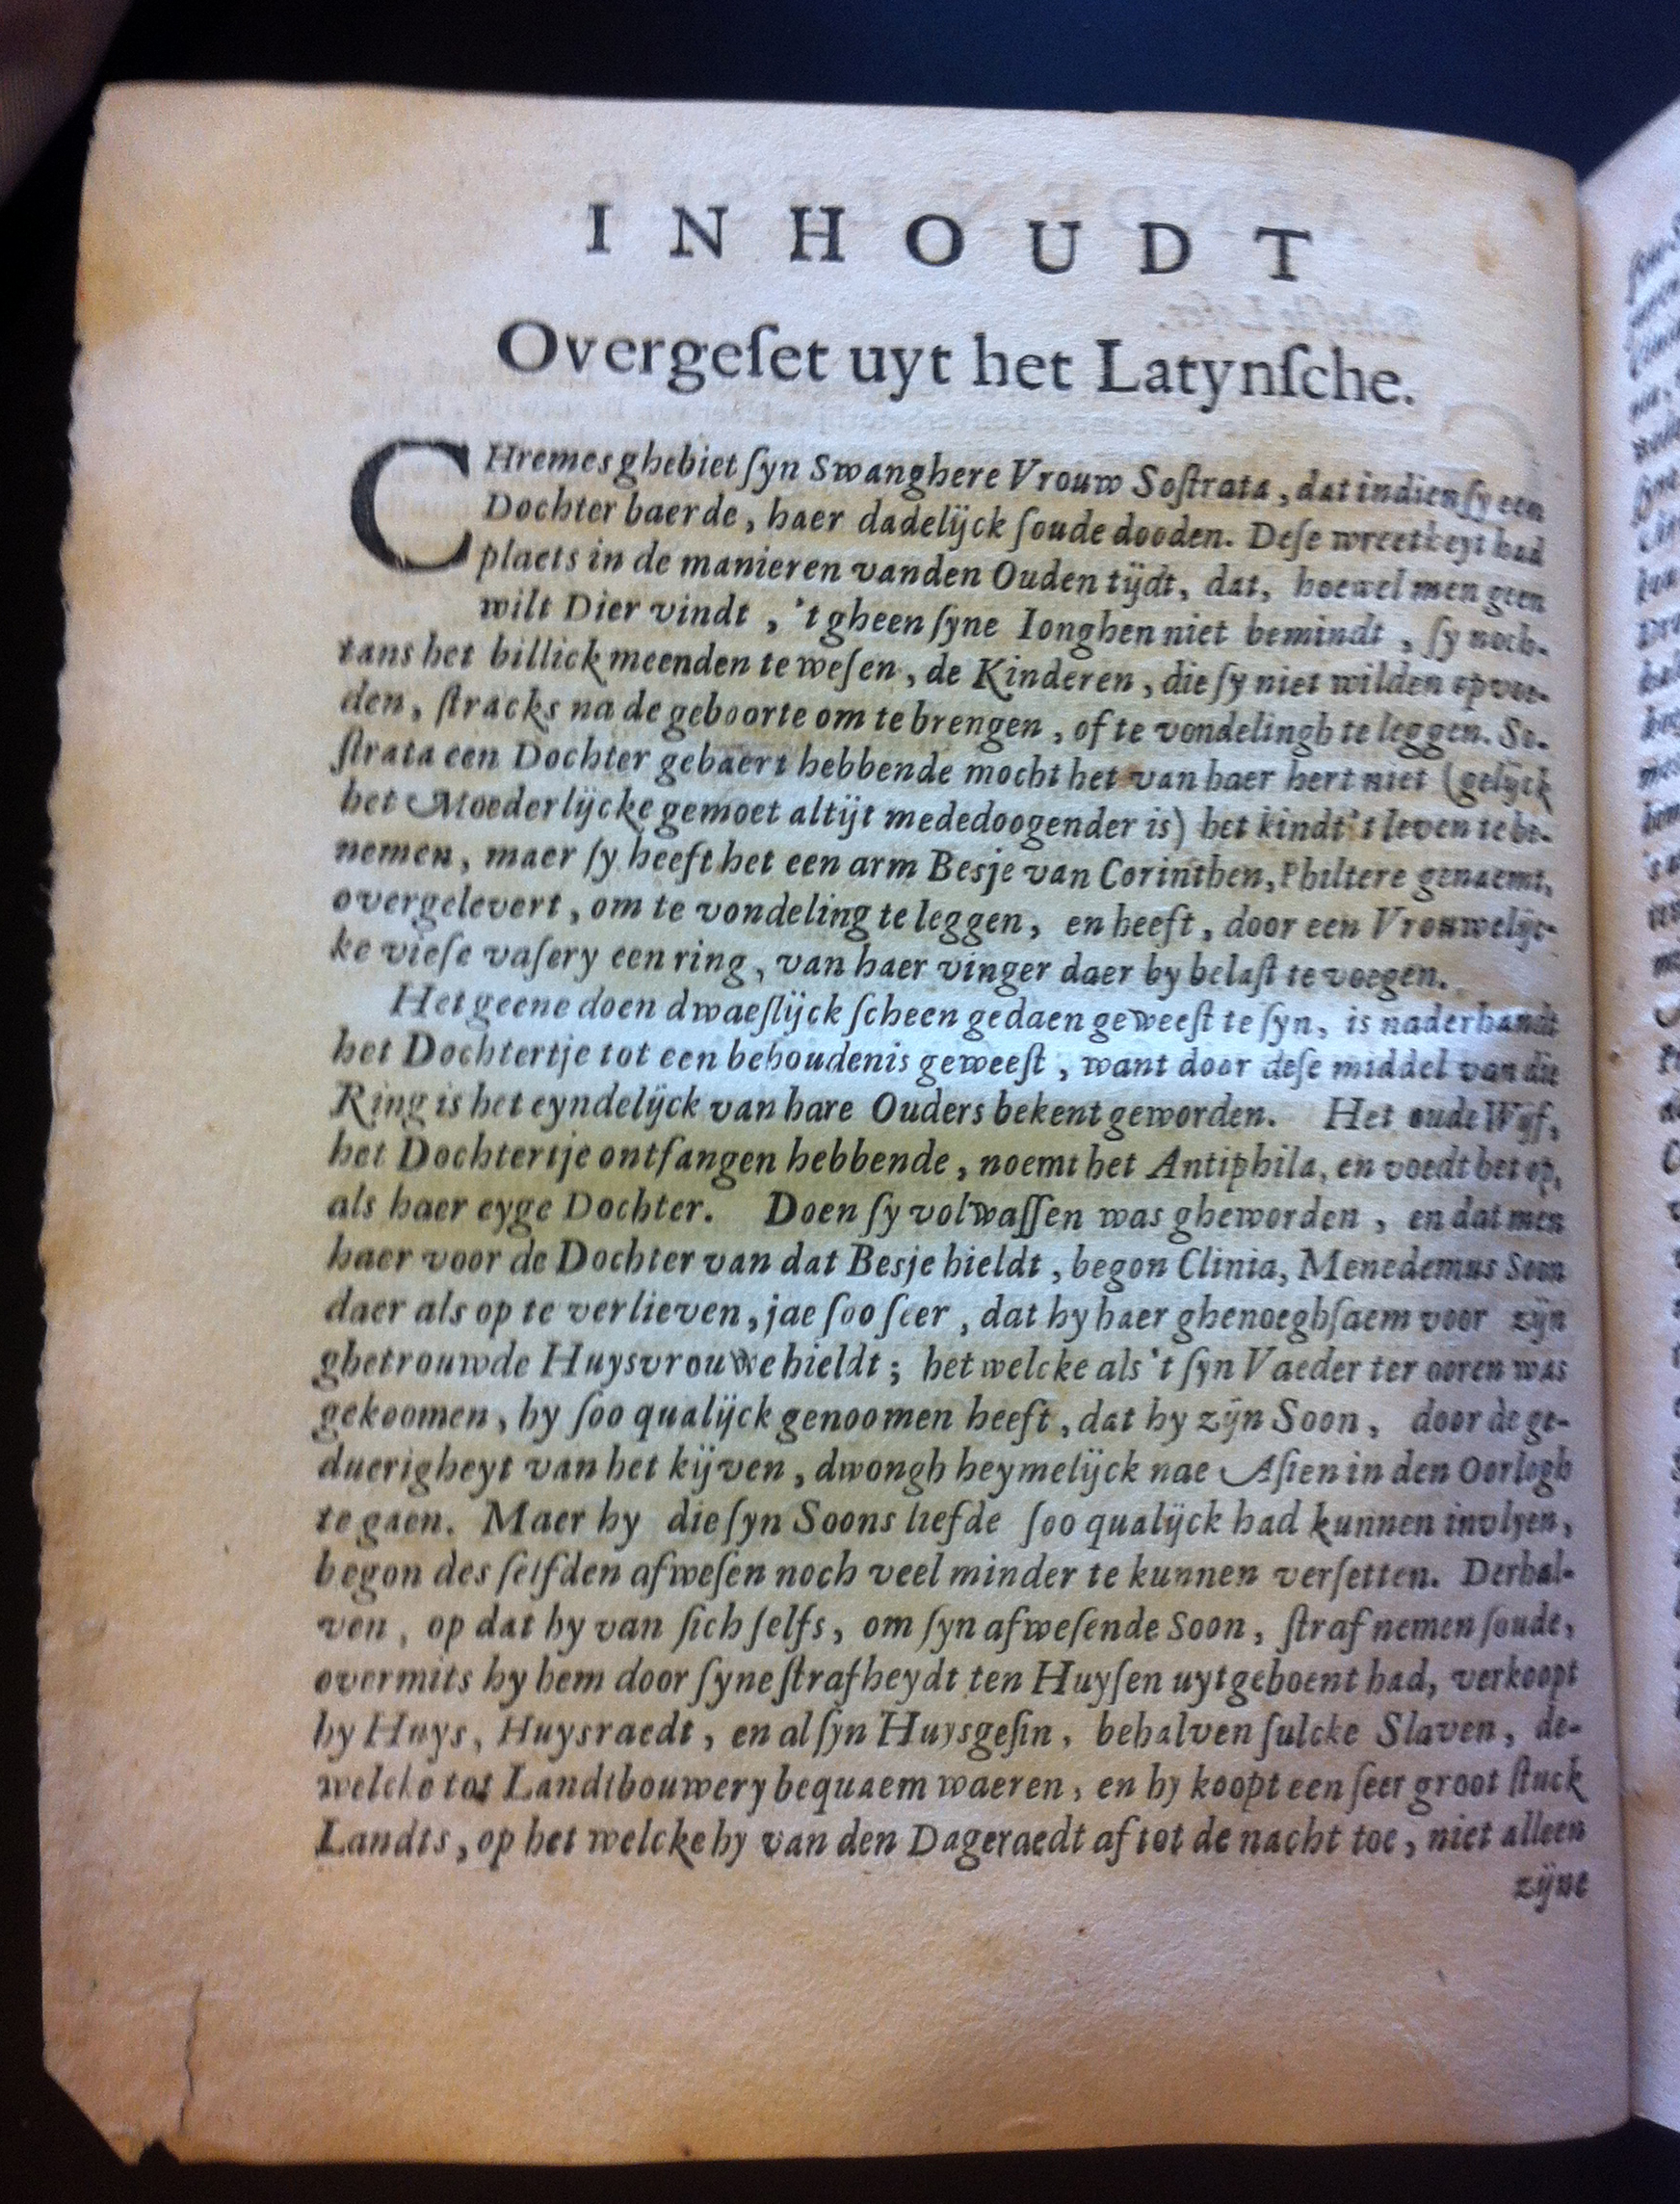 INHOUDT
Overgeſet uyt het Latynſche.
CHremes ghebiet ſyn Swanghere Vrouw Soſtrata, dat indien ſy een
Dochter baerde, haer dadelijck ſoude dooden. Deſe wreetheyt had
plaets in de manieren vanden Ouden tijdt, dat, hoewel men geen
wilt Dier vindt, 't gheen ſyne Ionghen niet bemindt, ſy noch-
tans het billick meenden te weſen, de Kinderen, die ſy niet wilden opvoe-
den, ſtracks na de geboorte om te brengen, of te vondelingh te leggen. So-
ſtrata een Dochter gebaert hebbende mocht het van haer hert niet (gelijck
het Moederlijcke gemoet altijt mededoogender is) het kindt 't leven te be-
nemen, maer ſy heeft het een arm Besje van Corinthen, Philtere genaemt,
overgelevert, om te vondeling te leggen, en heeft, door een Vrouwelijc-
ke vieſe vaſery een ring, van haer vinger daer by belaſt te voegen.
Het geene doen dwaeſlijck ſcheen gedaen geweeſt te ſyn, is naderhandt
het Dochtertje tot een behoudenis geweeſt, want door deſe middel van die
Ring is het eyndelijck van hare Ouders bekent geworden. Het oude Wijf,
het Dochtertje ontfangen hebbende, noemt het Antiphila, en voedt het op,
als haer eyge Dochter. Doen ſy volwaſſen was gheworden, en dat men
haer voor de Dochter van dat Besje hieldt, begon Clinia, Menedemus Soon
daer als op te verlieven, jae ſoo ſeer, dat hy haer ghenoeghſaem voor zijn
ghetrouwde Huysvrouwe hieldt; het welcke als 't ſyn Vaeder ter ooren was
gekoomen, hy ſoo qualijck genoomen heeft, dat hy zijn Soon, door de ge-
duerigheyt van het kijven, dwongh heymelijck nae Aſien in den Oorlogh
te gaen. Maer hy die ſyn Soons liefde ſoo qualijck had kunnen invlyen,
begon des ſelfden afweſen noch veel minder te kunnen verſetten. Derhal-
ven, op dat hy van ſich ſelfs, om ſyn afweſende Soon, ſtraf nemen ſoude,
overmits hy hem door ſyne ſtrafheydt ten Huyſen uytgeboent had, verkoopt
hy Huys, Huysraedt, en al ſyn Huysgeſin, behalven ſulcke Slaven, de-
welcke tot Landtbouwery bequaem waeren, en hy koopt een ſeer groot ſtuck
Landts, op het welcke hy van den Dageraedt af tot de nacht toe, niet alleen
zijne